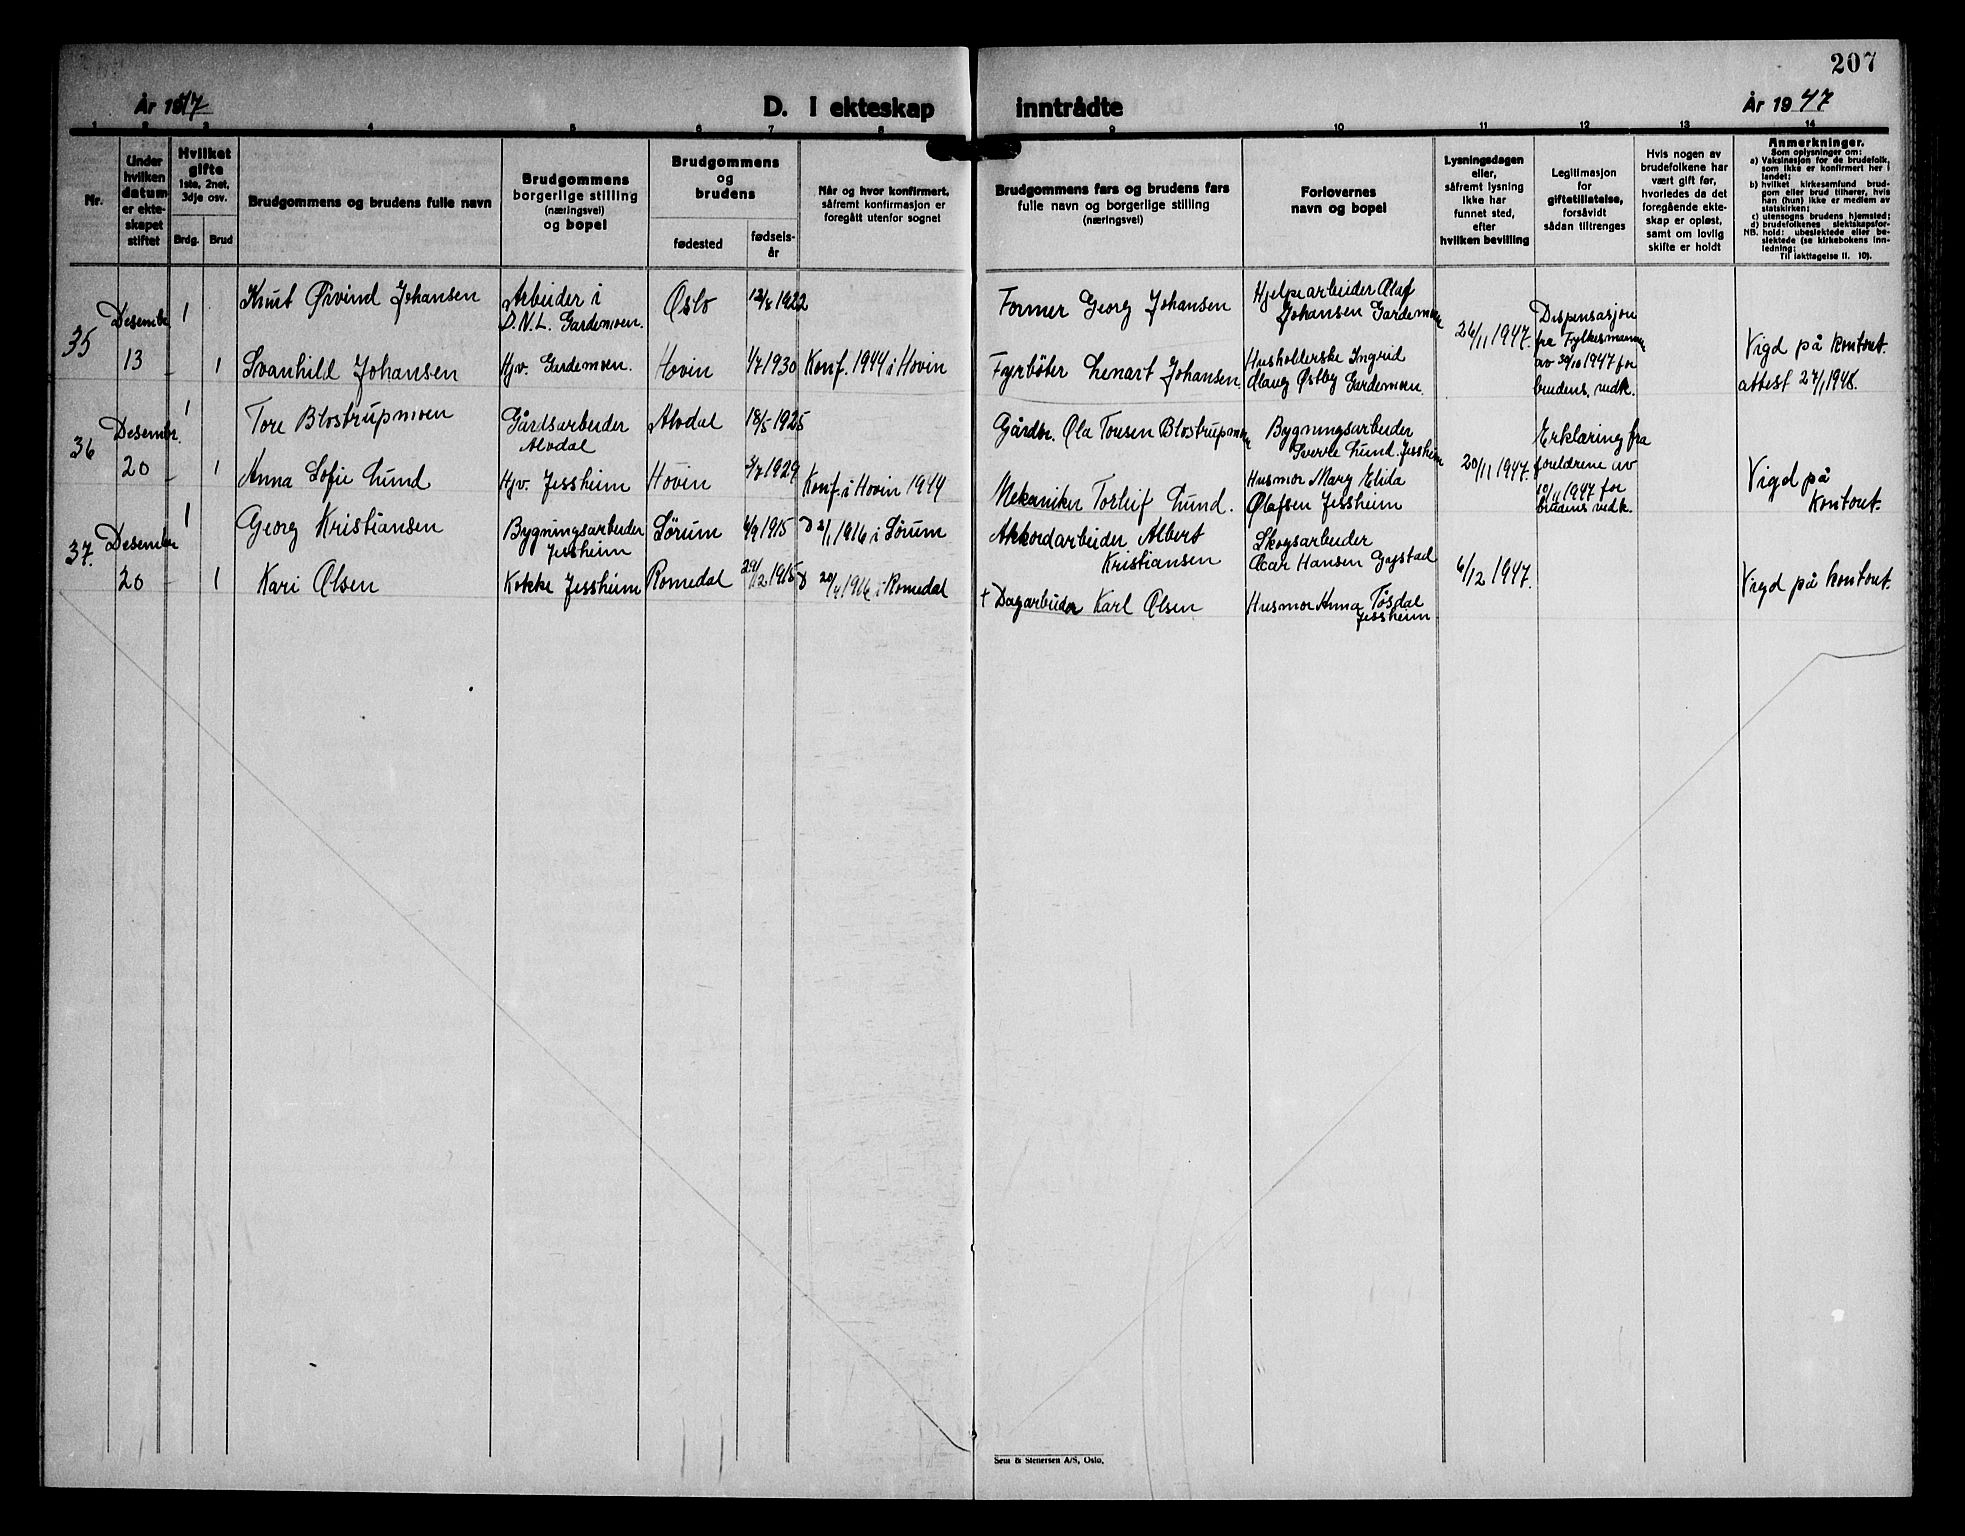 207
År 1947
D. I ekteskap inntrådte
År 1947
1 2 3 4 5 6 7 8 9 10 11 12 13 14
Nr.
Under
hvilken
datum
er ekte-
skapet
stiftet
Hvilket
gifte
1ste, 2net,
3dje osv.
Brdg. Brud
Brudgommens og brudens fulle navn
Brudgommens
borgerlige stilling
(næringsvei)
og bopel
Brudgommens
og
brudens
fødested
fødsels-
år
Når og hvor konfirmert,
såfremt konfirmasjon er
foregått utenfor sognet
Brudgommens fars og brudens fars
fulle navn og borgerlige stilling
(næringsvei)
Forlovernes
navn og bopel
Lysningsdagen
eller,
såfremt lysning
ikke har
funnet sted,
efter
hvilken bevilling
Legitimasjon
for
giftetillatelse,
forsåvidt
sådan tiltrenges
Hvis nogen av
brudefolkene har
vært gift før,
hvorledes da det
foregående ekte-
skap er opløst,
samt om lovlig
skifte er holdt
Anmerkninger.
Som oplysninger om:
a) Vaksinasjon for de brudefolk,
som ikke er konfirmert her i
landet;
b) hvilket kirkesamfund brud-
gom eller brud tilhører, hvis
han (hun) ikke er medlem av
statskirken;
c) utensogns brudens hjemsted;
d) brudefolkenes slektskapsfor-
NB. hold: ubeslektede eller be-
slektede (se kirkebokens inn-
ledning;
Til iakttagelse II. 10).
35
Desember
13
1
Knut Øivind Johansen
Arbeider i
D.N.L. Gardemoen.
Oslo
12/8 1922
Former Georg Johansen
Hjelpearbeider Olaf
Johansen Gardemoen
26/11 1947.
Dispensasjon
fra Fylkesmannen
av 30/10 1947 for
brudens vedk.
Vigd på kontort.
attest 27/1 1948.
1
Svanhild Johansen
Hjv. Gardemoen.
Hovin
1/7 1930
Konf. 1944 i Hovin
Fyrbøter Lenart Johansen
Husholderske Ingrid
Olaug Østby Gardemoen.
36
Desember.
20
1
Tore Blostrupmoen
Gårdsarbeider
Alvdal
Alvdal
18/5 1925
Gårdbr. Ola Tonsen Blostrupmoen
Bygningsarbeider
Sverre Lund. Jessheim
20/11 1947.
Erklæring fra
foreldrene av
10/11 1947 for
brudens vedk.
Vigd på
kontort.
1
Anna Sofie Lund
Hjv. Jessheim
Hovin
3/7 1929
Konf. i Hovin 1944
Mekaniker Torleif Lund.
Husmor Mary Elida
Olafsen Jessheim
37.
Desember
20
1
Georg Kristiansen
Bygningsarbeider
Jessheim
Sørum
6/9 1915
D 2/1 1916 i Sørum
Akkordarbeider Albert
Kristiansen
Skogsarbeider
Oscar Hansen Gystad
6/12 1947.
Vigd på kontort.
1
Kari Olsen
Kokke Jessheim
Romedal
29/12 1915
D 20/4 1916 i Romedal
† Dagarbeider Karl Olsen
Husmor Anna Tøsdal
Jessheim
Sem & Stenersen A/S, Oslo.